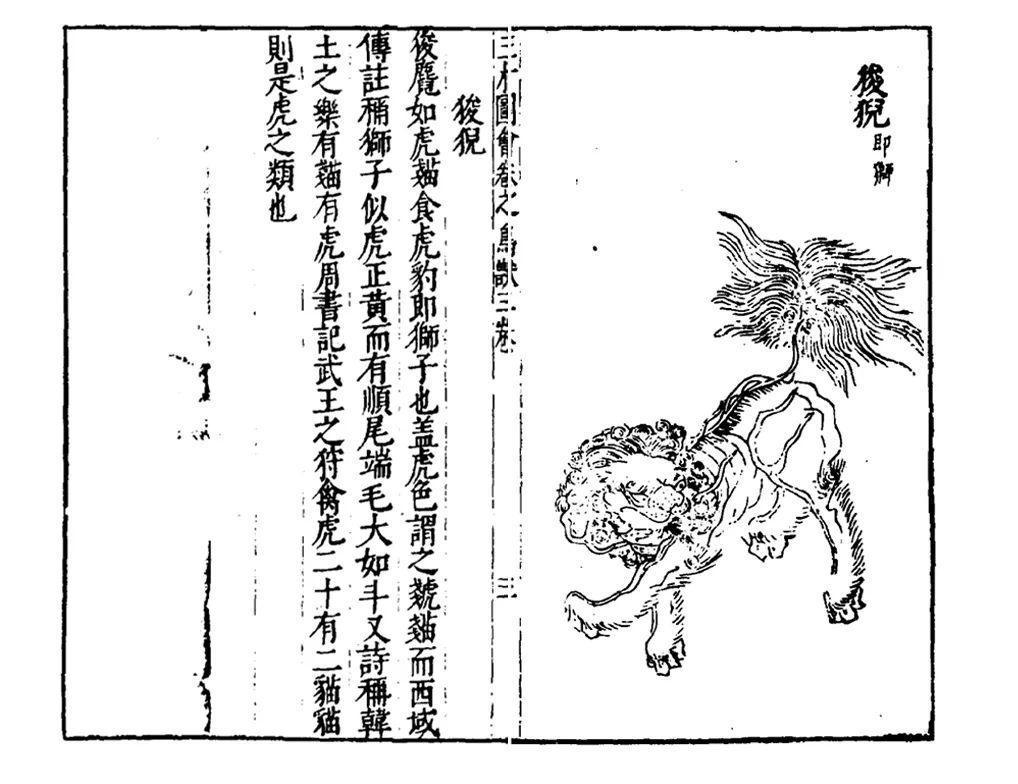 狻猊
即獅
三才圖會卷之鳥獸三卷
三
狻猊
俊麑如虎貓食虎豹即獅子也盖虎色謂之虦貓而西域
傳註稱獅子似虎正黄而有順尾端毛大如斗又詩稱韓
土之樂有貓有虎周書記武王之狩禽虎二十有二貓貓
則是虎之類也